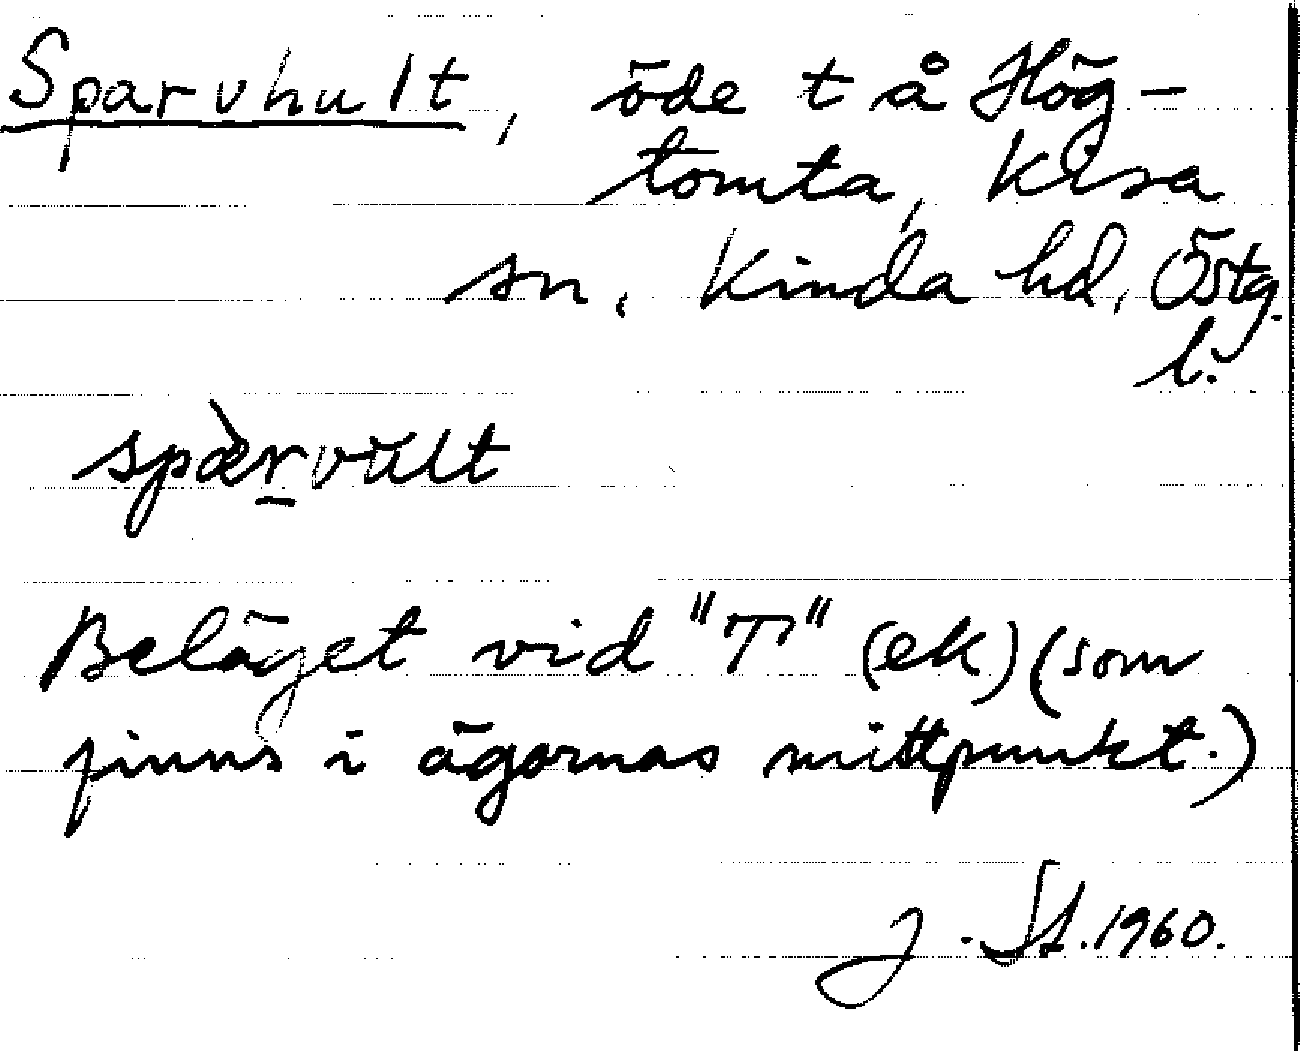 Sparvhult, öde t å Hög-
tomta, Kisa
sn, Kinda hd, Östg.
l.
spæ̀rvult
Beläget vid "T" (ek) (som
finns i ägornas mittpunkt.)
J. St. 1960.